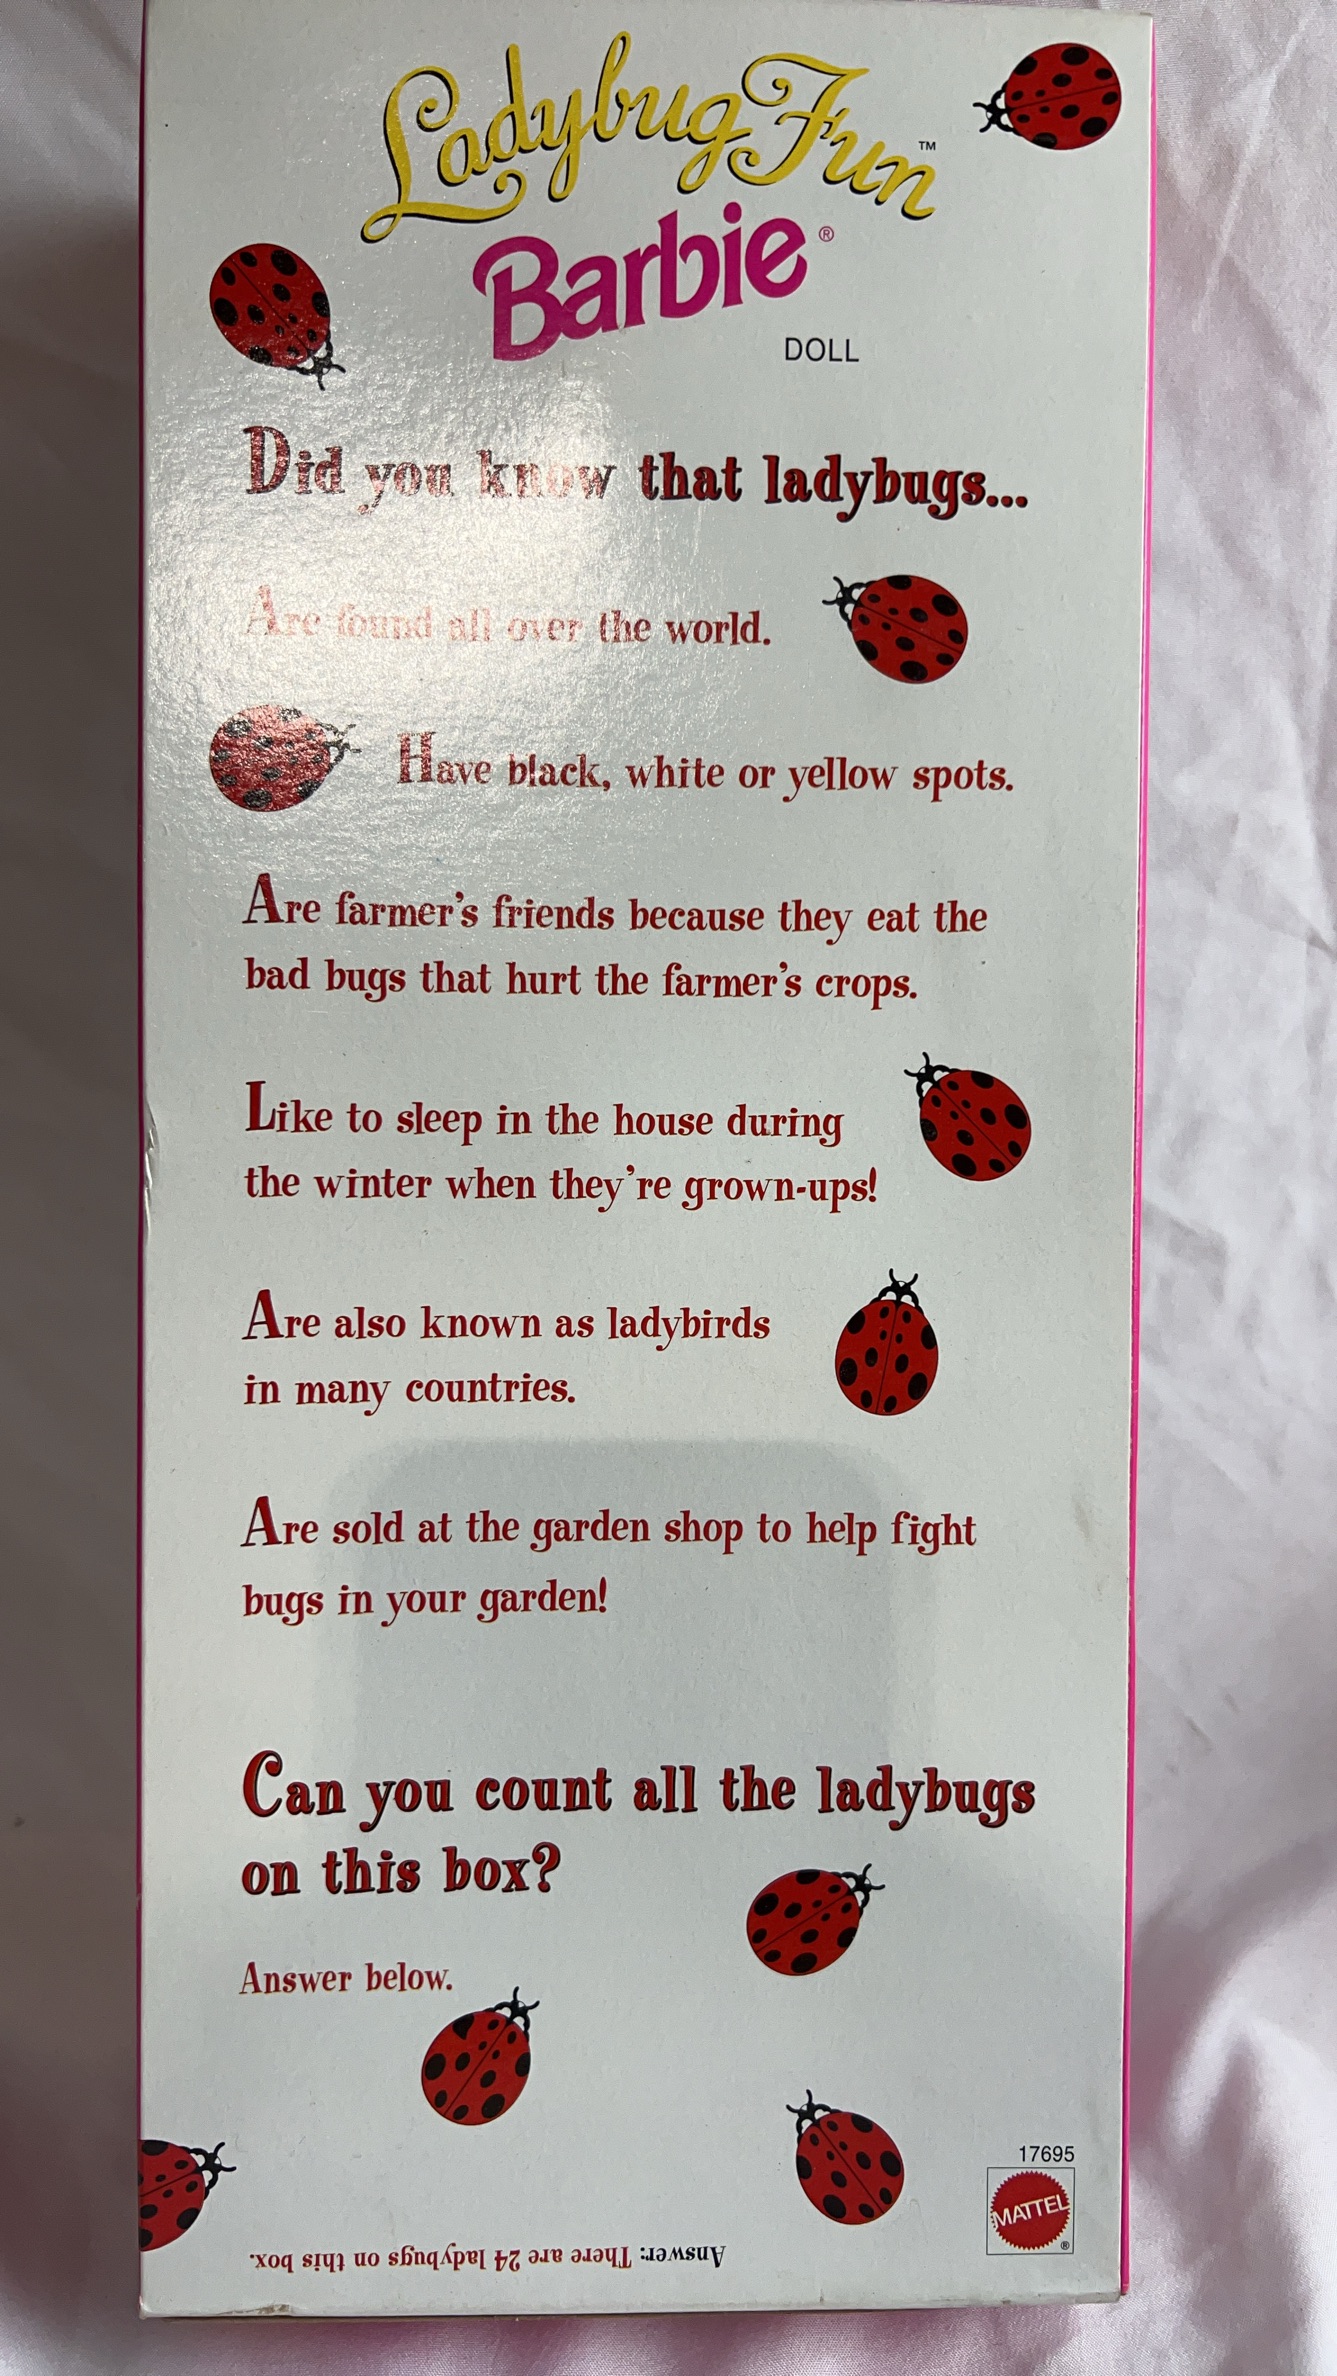 Ladybug Fun™
Barbie®
DOLL
Did you know that ladybugs...
Are found all over the world.
Have black, white or yellow spots.
Are farmer's friends because they eat the
bad bugs that hurt the farmer's crops.
Like to sleep in the house during
the winter when they're grown-ups!
Are also known as ladybirds
in many countries.
Are sold at the garden shop to help fight
bugs in your garden!
Can you count all the ladybugs
on this box?
Answer below.
17695
MATTEL
®
Answer: There are 24 ladybugs on this box.